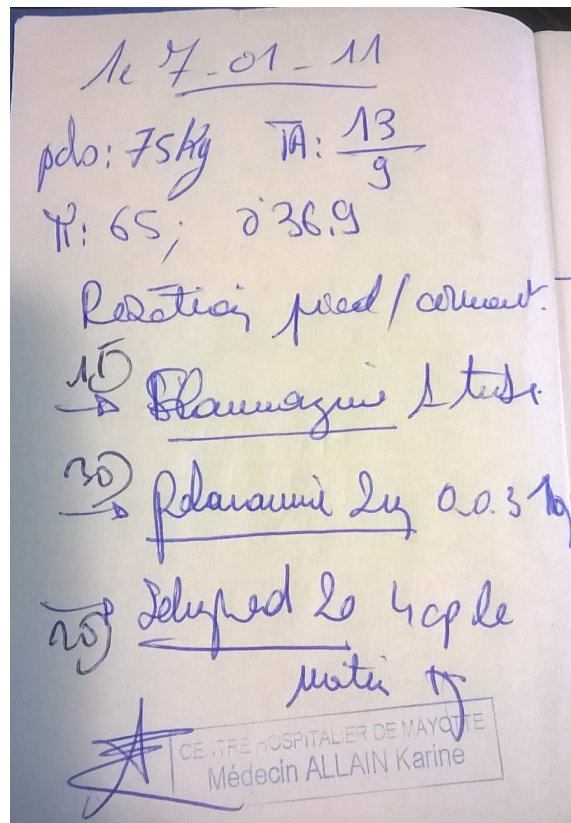 le 7-01-11
pds: 75kg TA: 13/9
π: 65; θ 36.9
pied /
1T
→ Flammazine 1 tube
30)
→ Polaramine 2mg
20) Solupred 20 4 cp le
matin
CENTRE HOSPITALIER DE MAYOTTE
Médecin ALLAIN Karine